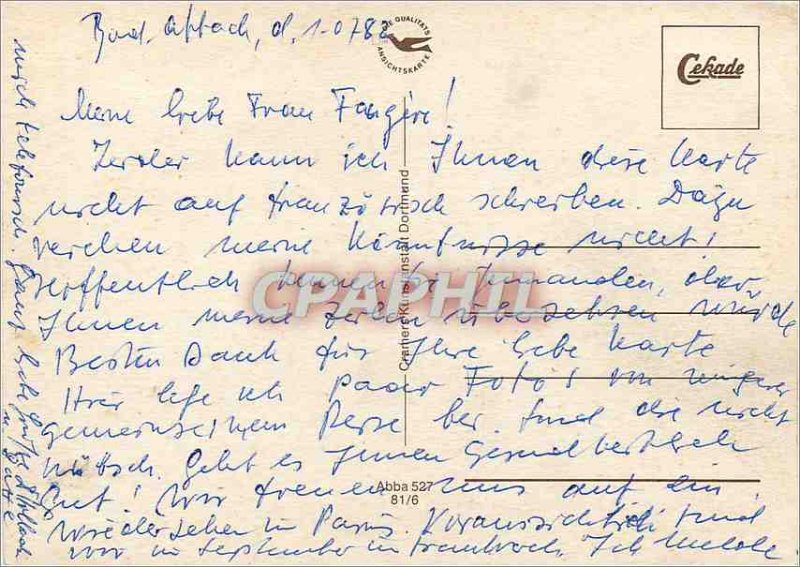 Bad d. 1.
DIE QUALITÄTS
ANSICHTSKARTE
Cekade
Meine liebe Frau
Leider kann ich Ihnen diese Karte
nicht auf französisch schreiben. Dazu
reichen meine Kenntnisse nicht!
Hoffentlich kennen Sie Jemanden, der
Ihnen meine Zeilen übersetzen würde
Besten Dank für Ihre liebe Karte
Hier lege ich paar Fotos von unserer
gemeinsamen Reise bei. Sind die nicht
hübsch. Geht es Ihnen gesundheitlich
gut! Wir freuen uns auf ein
Wiedersehen in Paris. Voraussichtlich sind
wir im September in Frankreich. Ich melde
mich telefonisch. Ganz liebe Grüße
u. Gatte
Cramers Kunstanstalt Dortmund
Abba 527
81/6
CPAPHIL